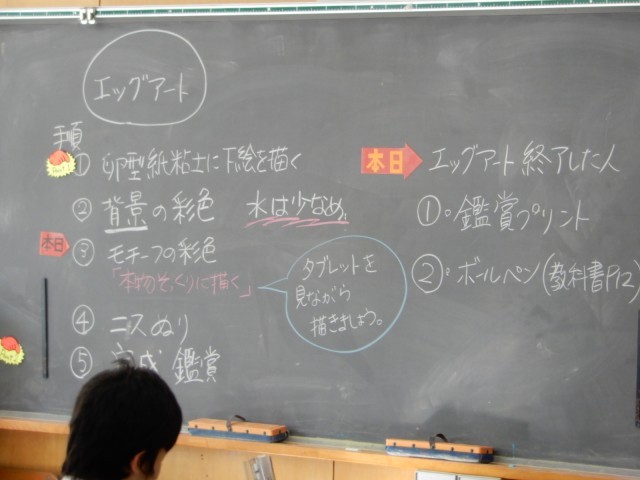 エッグアート
手順
① 卵型紙粘土に下絵を描く
② 背景の彩色 水は少なめ
本日
③ モチーフの彩色
「本物そっくりに描く」
タブレットを
見ながら
描きましょう。
④ ニスぬり
⑤ 完成 鑑賞
本日 エッグアート終了した人
①・鑑賞プリント
②・ボールペン(教科書P12)